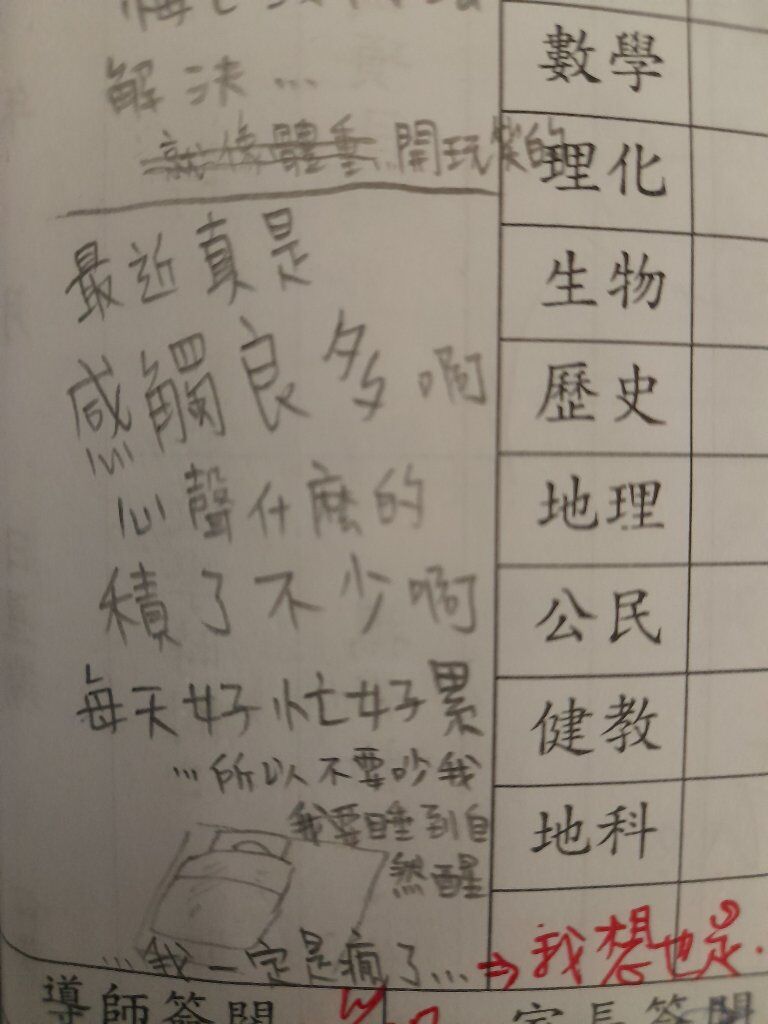 解決...
就像體重開玩笑的
最近真是
感觸良多啊
心聲什麼的
積了不少啊
每天好忙好累
...所以不要吵我
我要睡到自
然醒
...我一定是瘋了...→我想也是.
數學
理化
生物
歷史
地理
公民
健教
地科
導師簽閱
家長簽閱